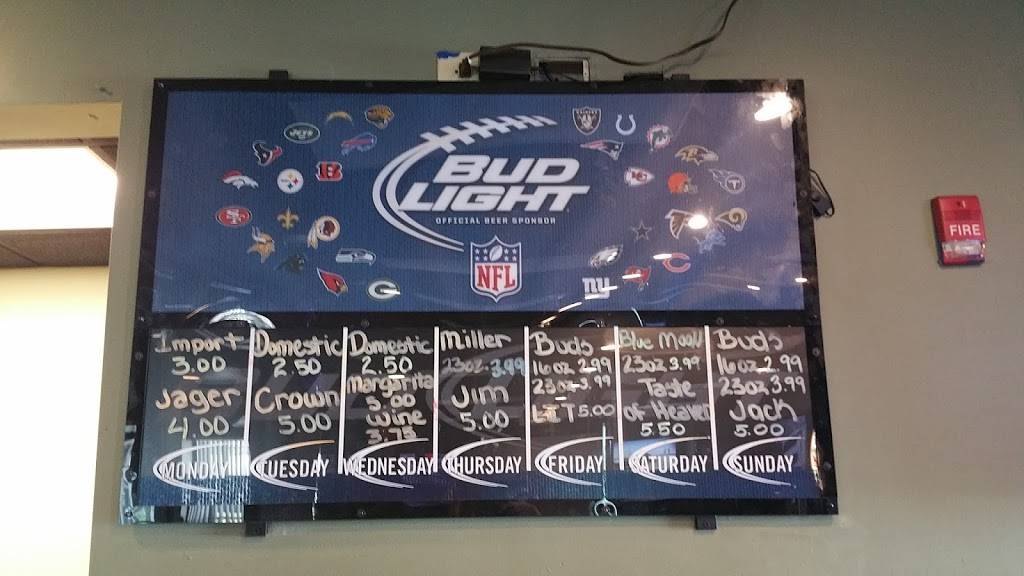 JETS
BUD
LIGHT
OFFICIAL BEER SPONSOR
NFL
ny
G
FIRE
Import
3.00
Jager
4.00
MONDAY
Domestic
2.50
Crown
5.00
TUESDAY
Domestic
2.50
Margarita
5.00
Wine
3.75
WEDNESDAY
Miller
23oz. 3.99
Jim
5.00
THURSDAY
Buds
16oz 2.99
23oz 3.99
LIT 5.00
FRIDAY
Blue Moon
23oz 3.99
Taste
of Heaven
5.50
SATURDAY
Buds
16oz 2.99
23oz 3.99
Jack
5.00
SUNDAY